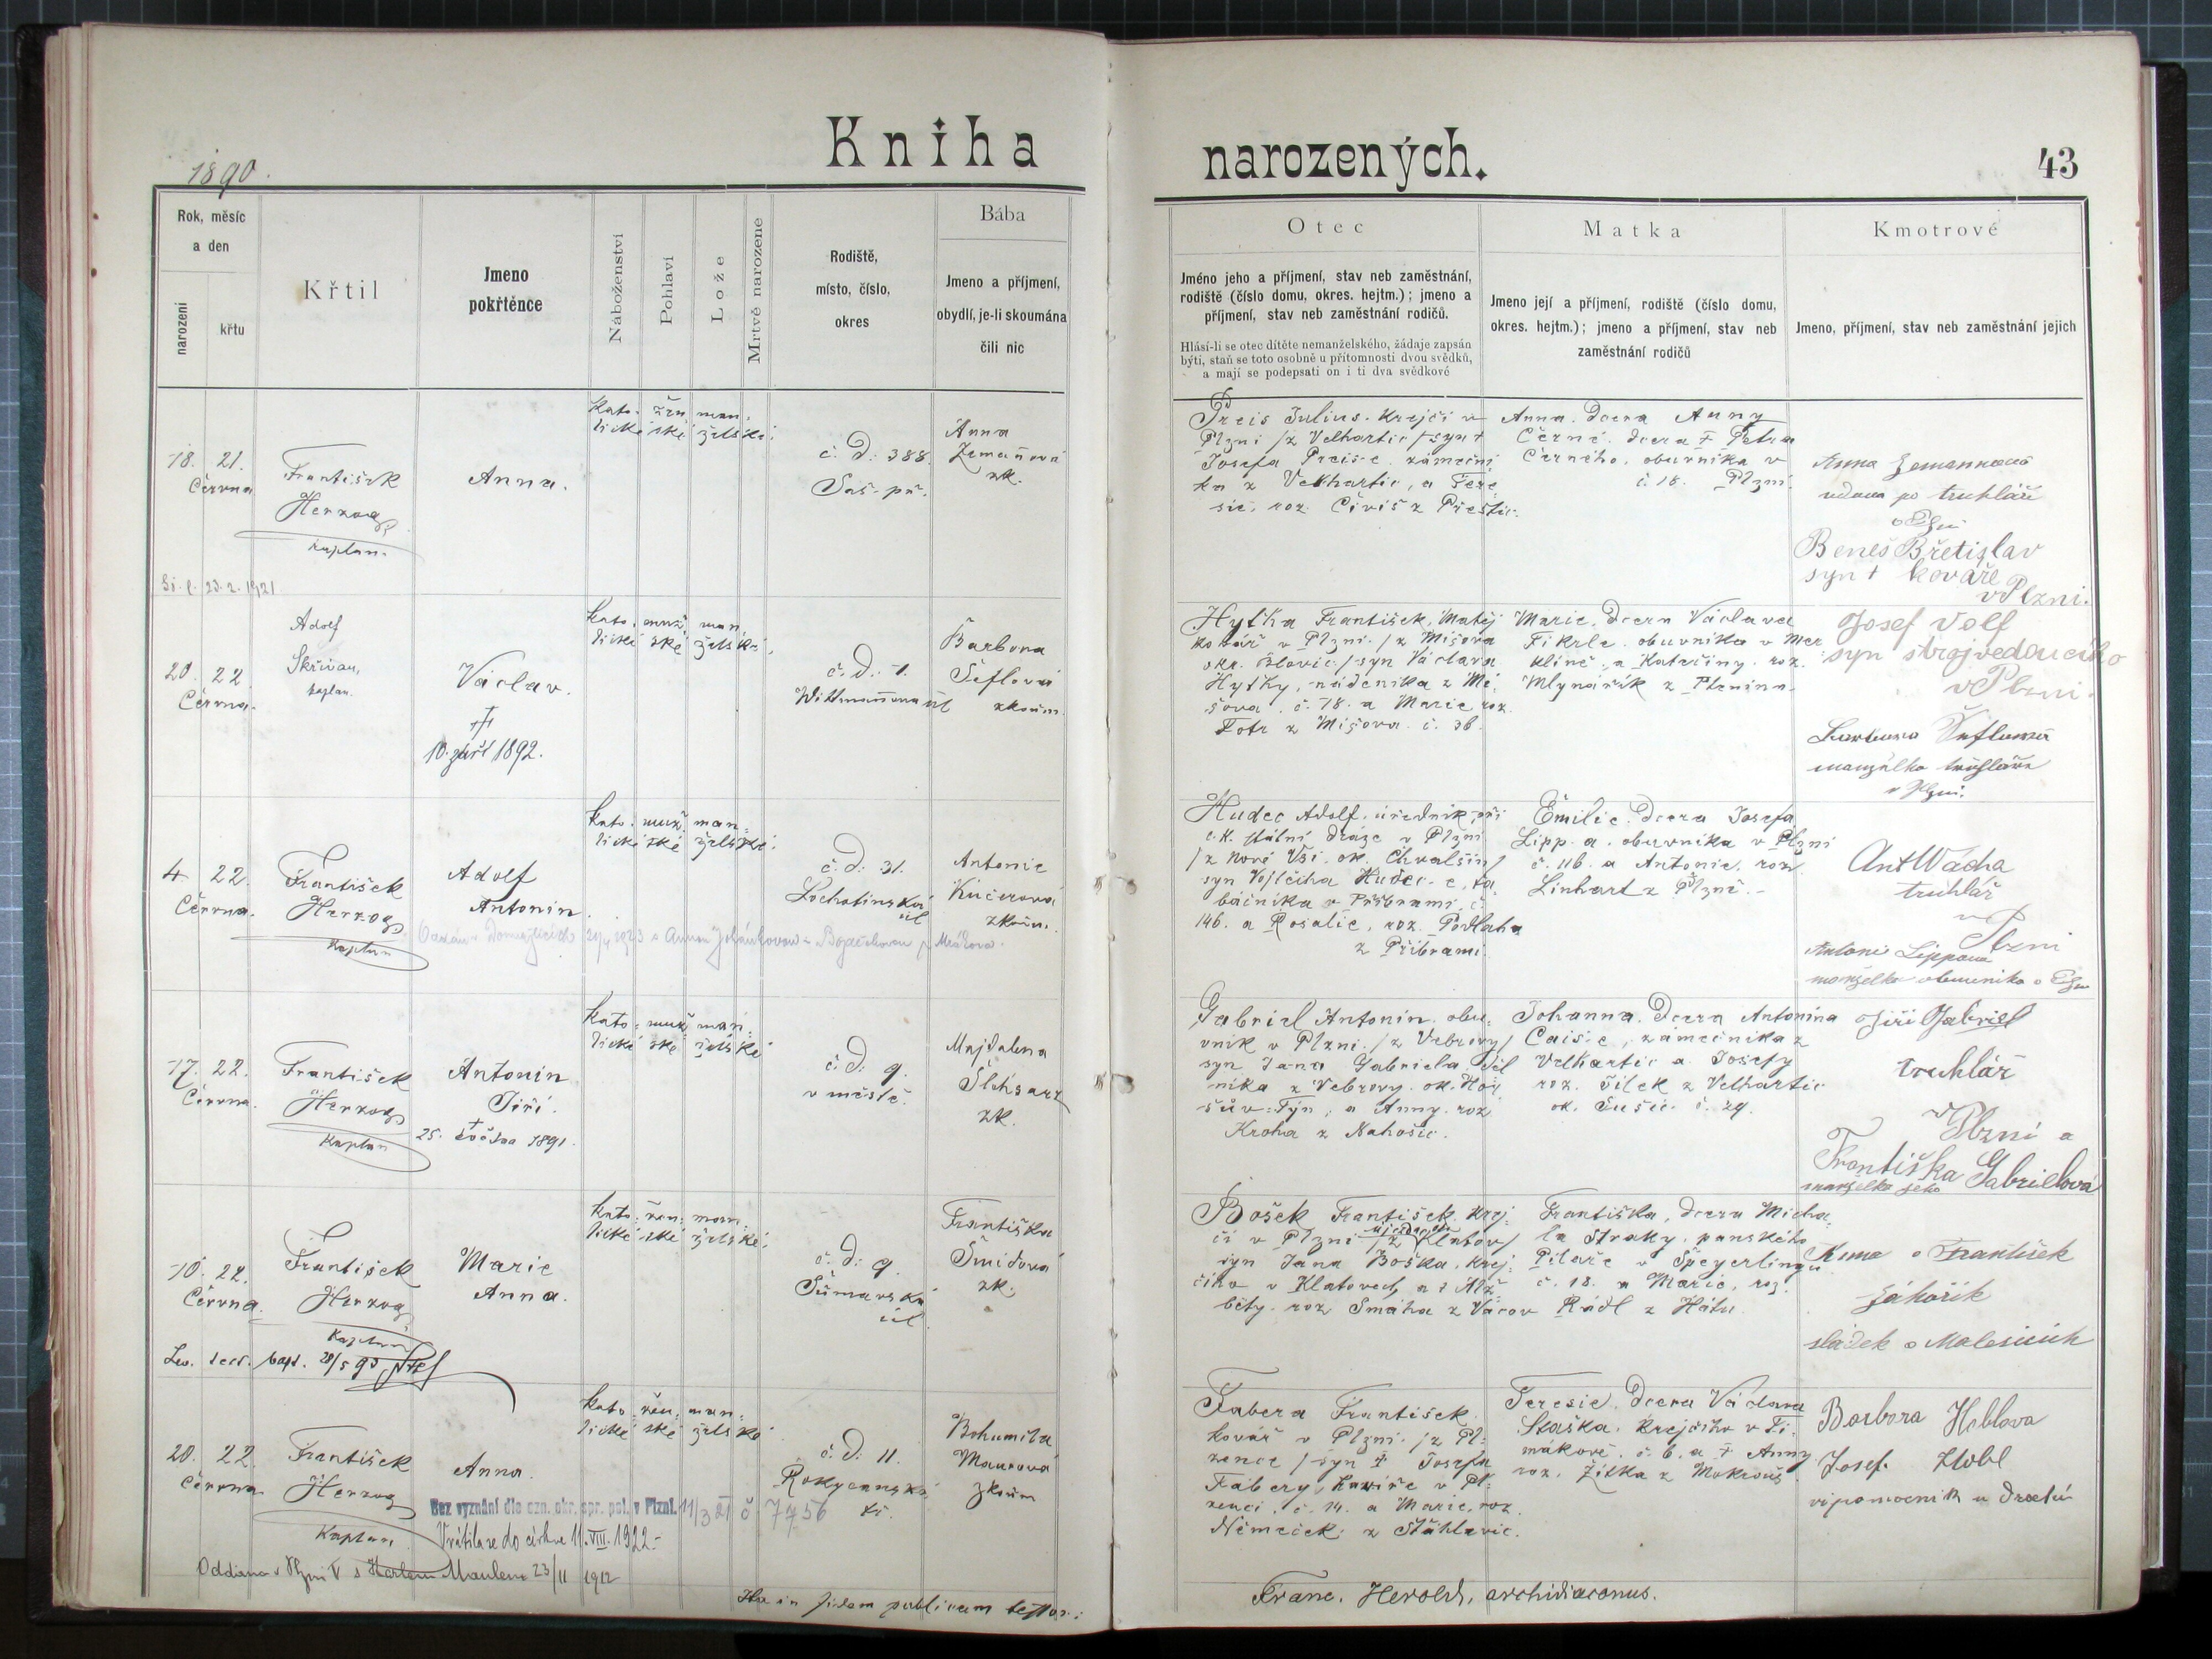 1890.
Kniha
narozených.
43
Rok, měsíc
a den
narození
křtu
Křtil
Jmeno
pokřtěnce
Náboženství
Pohlaví
Lože
Mrtvě narozené
Rodiště,
místo, číslo,
okres
Bába
Jmeno a příjmení,
obydlí, je-li skoumána
čili nic
Otec
Jméno jeho a příjmení, stav neb zaměstnání,
rodiště (číslo domu, okres. hejtm.); jmeno a
příjmení, stav neb zaměstnání rodičů.
Hlásí-li se otec dítěte nemanželského, žádaje zapsán
býti, staň se toto osobně u přítomnosti dvou svědků,
a mají se podepsati on i ti dva svědkové
Matka
Jmeno její a příjmení, rodiště (číslo domu,
okres. hejtm.); jmeno a příjmení, stav neb
zaměstnání rodičů
Kmotrové
Jmeno, příjmení, stav neb zaměstnání jejich
18. 21.
Června
František
Herzog
kaplan.
23.2.1921
Anna.
kato- žen man-
lické ské želské
č. d. 388.
Saš. př.
Anna
Zemanová
zk.
Preis Julius. krejčí v
Plzni /z Velhartic/ syn †
Josefa Preis-e zámeční
ka z Velhartic, a Tere
sie, roz. Čiviš z Přeštic.
Anna. dcera Anny
Černé. dcera † Petra
Černého. obuvníka v
č. 18. Plzni.
Anna Zemannová
vdova po truhláři
v Plzni
Beneš Břetislav
syn † kováře
v Plzni.
20. 22.
Června.
Adolf
Skřivan,
kaplan.
Václav.
†
10. září 1892.
kato- muž man
lické ské želské
č. d. 1.
Wittmannova ul
Barbora
Šeflová
zkoum.
Hytka František, Matěj
kovář v Plzni. /z Mišova
okr. Blovic/ syn Václava
Hytky, nádeníka z Mi
šova. č. 78. a Marie roz.
Fotr z Mišova. č. 36.
Marie, dcera Václava
Fikrle. obuvníka v Mer
klíně, a Kateřiny. roz.
Mlynařík z Ptenína.
Josef Volf
syn strojvedoucího
v Plzni.
Barbora Šeflová
manželka truhláře
v Plzni.
4 22.
Června.
František
Herzog
Kaplan
Adolf
Antonín.
kato- muž man-
lické ské želské
č. d. 31.
Lochotínská
ul
Antonie
Kučerová
zkoum.
Hudec Adolf. úředník při
c. k. státní dráze v Plzni
/z Nové Vsi. ok. Chvalšin/
syn Vojtěcha Hudec-e, ta
báčníka v Příbrami, č.
146. a Rosalie, roz. Podlaha
z Příbrami.
Emilie. dcera Josefa
Lipp-a. obuvníka v Plzni
č. 116. a Antonie, roz.
Linhart z Plzně.-
Ant Vácha
truhlář
v
Plzni
Antonie Lippová
manželka obuvníka v Plzni
17. 22.
Června.
František
Herzog
Kaplan
Antonín
Jiří.
†
25. 1891.
kato- muž man-
lické ské želské
č. d. 9.
v městě.
Majdalena
zk.
Gabriel Antonín. obu-
vník v Plzni. /z Vebrovy/
syn Jana Gabriela děl
níka z Vebrovy. ok. Hor
šův-Týn, a Anny. roz
Kroha z Nahošic.
Johanna. dcera Antonína
Cais-e, zámečníka z
Velhartic a Josefy
roz. Šílek z Velhartic
ok. Sušic. č. 29.
Jiří Gabriel
truhlář
v
Plzni a
Františka Gabrielová
manželka jeho
10. 22.
Června.
František
Herzog
Kaplan
bapt. 28/5 90
Marie
Anna.
kato- žen- man-
lické ské želské
č. d. 9.
Šumavská
ul.
Františka
Šmidová
zk.
Bošek František krej-
čí v Plzni /z Klatov/
syn Jana Boška, krej-
čího v Klatovech, a † Alž-
běty. roz Smaha z Vácov
Františka, dcera Micha
la Straky. panského
Pilaře v Speyerlingu
č. 18. a Marie, roz.
Rádl z Hátu.
František
Záhořík
sládek v Malesicích
20. 22.
Června
František
Herzog
Kaplan.
Anna.
kato- žen- man-
lické ské želské
č. d. 11.
Rokycanská
tř.
Bohumila
Maurová
zkoum
Bez vyznání dle ozn. okr. spr. pol. v Plzni. 11/3 21 č. 7456
Vrátila se do církve 11. VIII. 1922.-
Oddána v Plzni V s Maulem 23/11 1912
Fabera František
kovář v Plzni. /z Pl-
zence/ syn † Josefa
Fabery, kováře v Pl-
zenci. č. 14. a Marie, roz.
Němeček z Šťáhlavic.
Teresie. dcera Václava
Staška. krejčího v Ti-
mákově. č. 6. a † Anny
roz. Žitka z Mokrouš.
Barbora Hoblova
Josef Hobl
výpomocník u drah
Ita in fidem publicam testor:
Franc. Herold, archidiaconus.